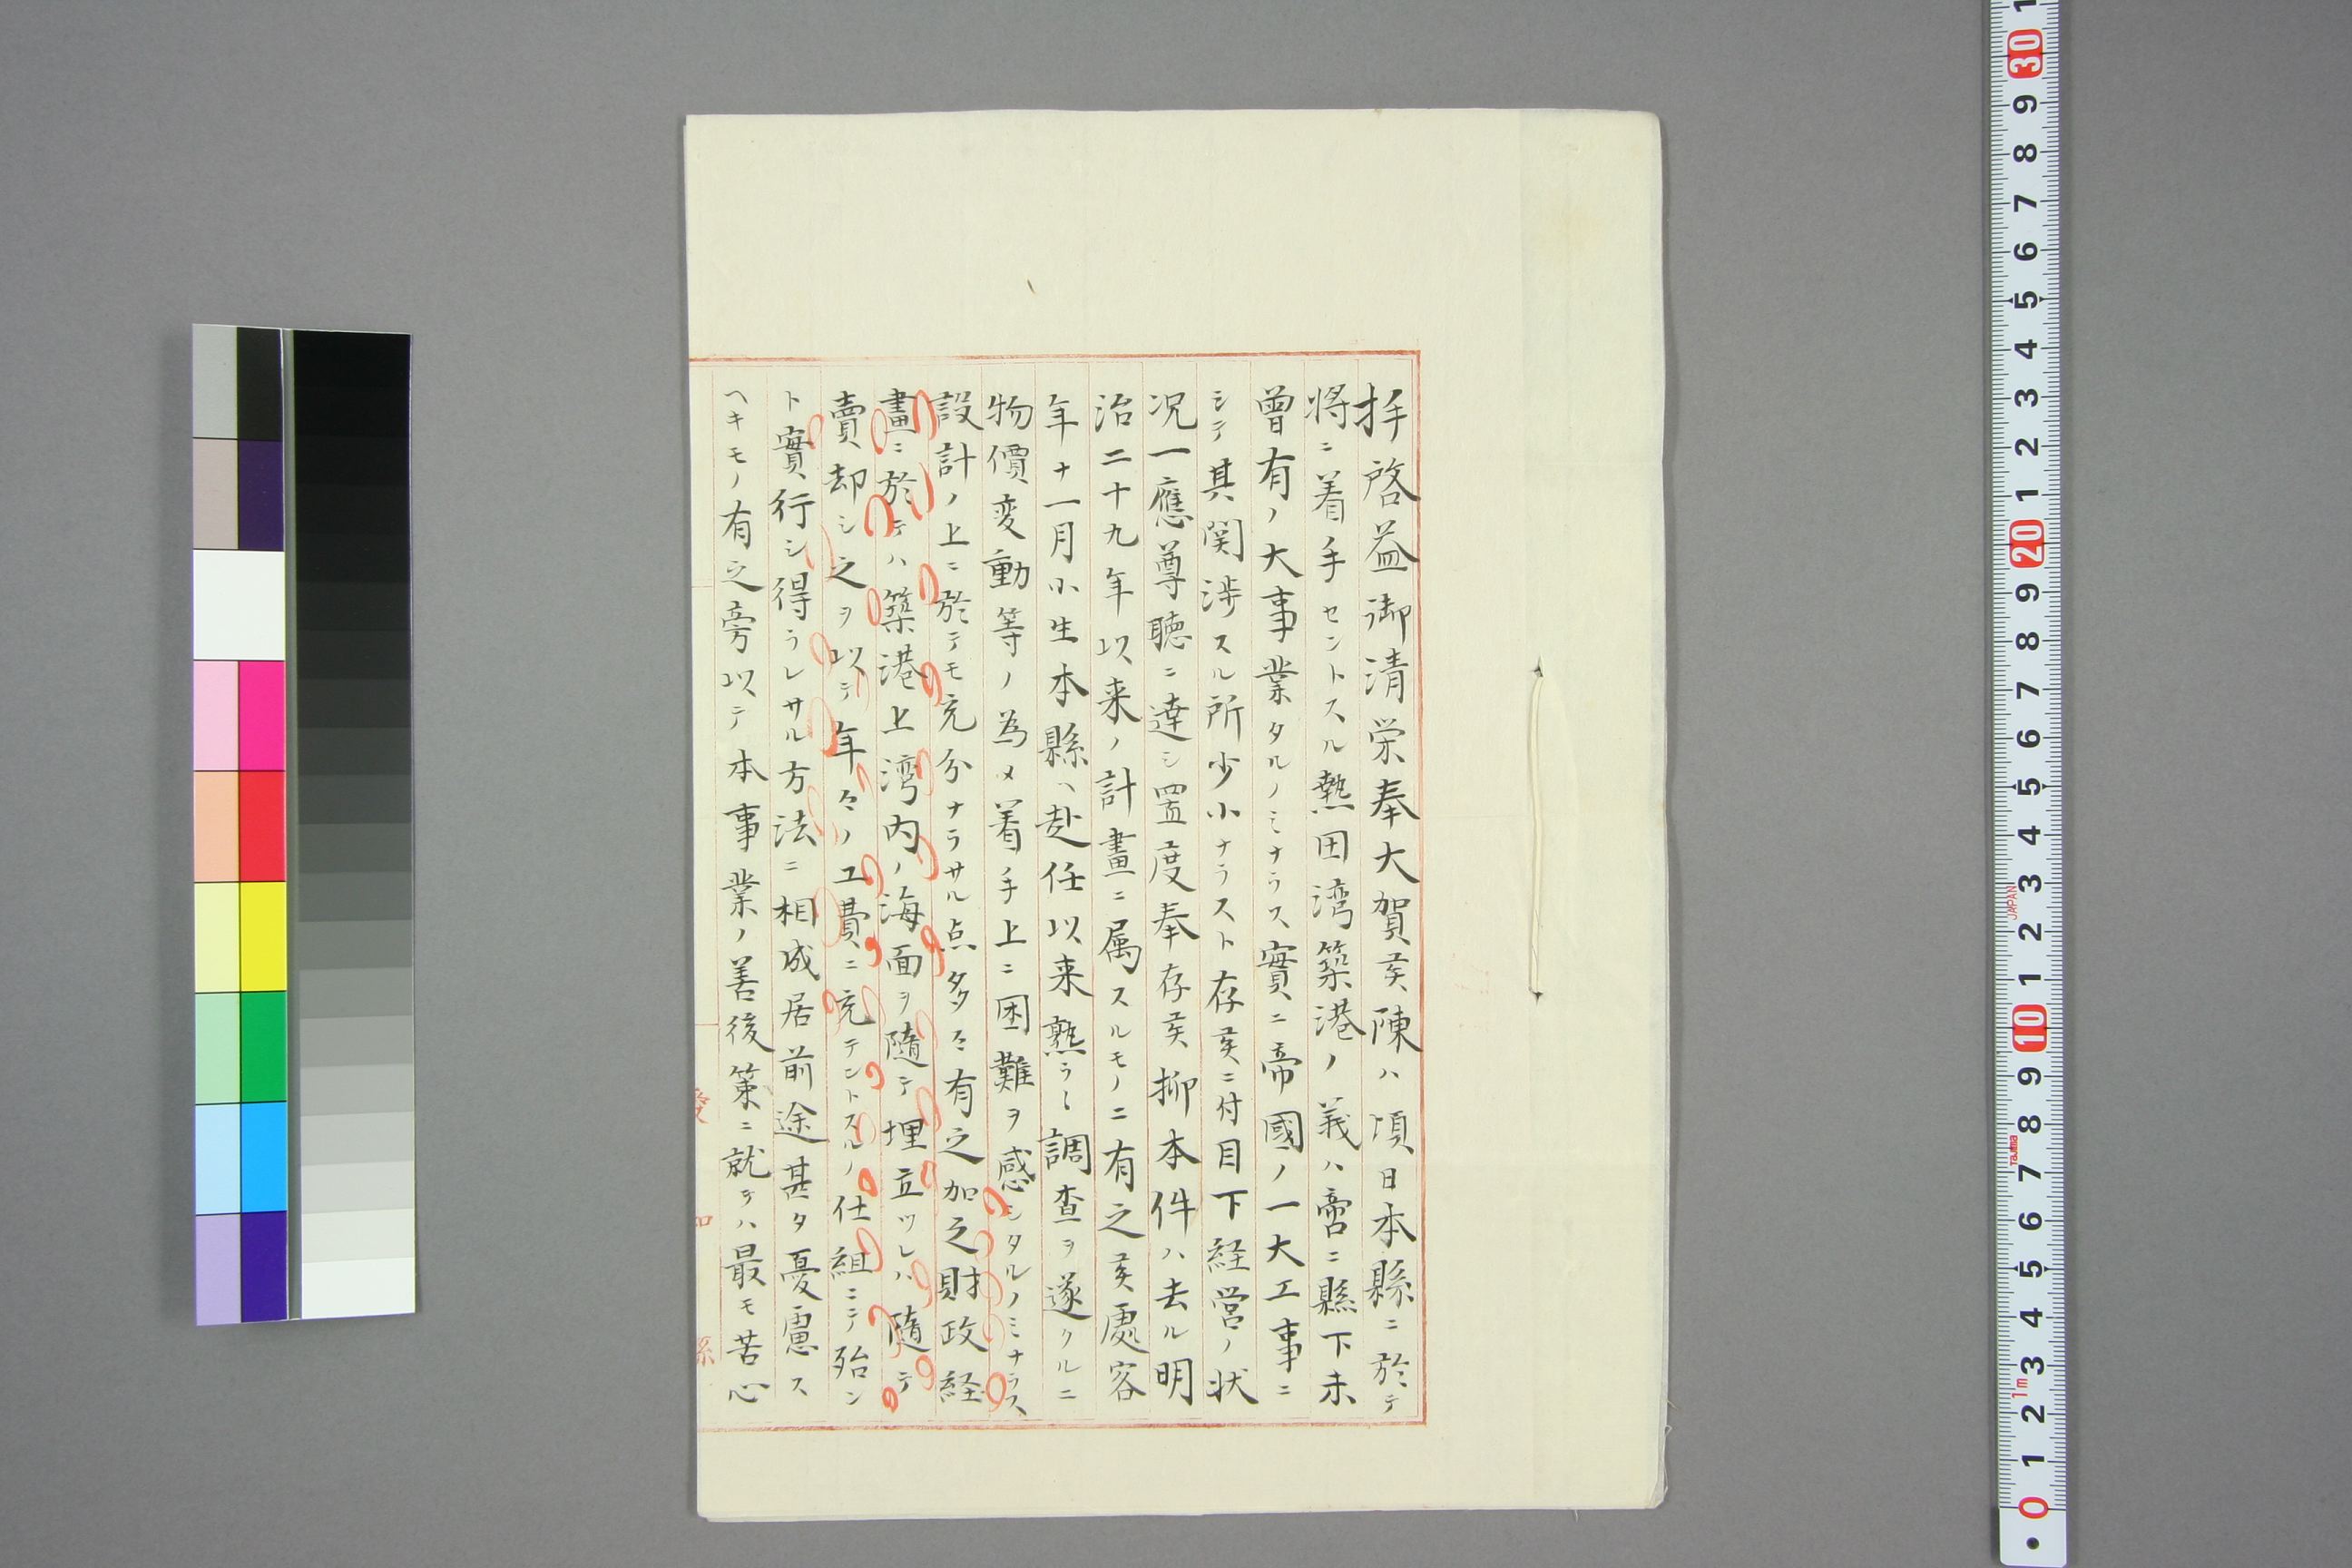 拝啓益御清栄奉大賀候陳ハ頃日本縣ニ於テ
将ニ着手セントスル熱田湾築港ノ義ハ啻ニ縣下未
曽有ノ大事業タルノミナラス實ニ帝國ノ一大工事ニ
シテ其関渉スル所少小ナラスト存候ニ付目下経営ノ状
况一應尊聴ニ達シ置度奉存候抑本件ハ去ル明
治二十九年以来ノ計畫ニ属スルモノニ有之候處客
年十一月小生本縣ヘ赴任以来熟ラ々調査ヲ遂クルニ
物價変動等ノ為メ着手上ニ困難ヲ感シタルノミナラス
設計ノ上ニ於テモ充分ナラサル点多々有之加之財政経
畫ニ於テハ築港上湾内ノ海面ヲ随テ埋立ツレハ随テ
賣却シ之ヲ以テ年々ノ工費ニ充テントスルノ仕組ニテ殆ン
ト實行シ得ラレサル方法ニ相成居前途甚タ憂慮ス
ヘキモノ有之旁以テ本事業ノ善後策ニ就テハ最モ苦心
30
9
8
7
6
5
4
3
2
1
20
9
8
7
6
5
4
3
2
1
10
9
8
7
6
5
4
3
2
1
0
JAPAN
Tajima
1m